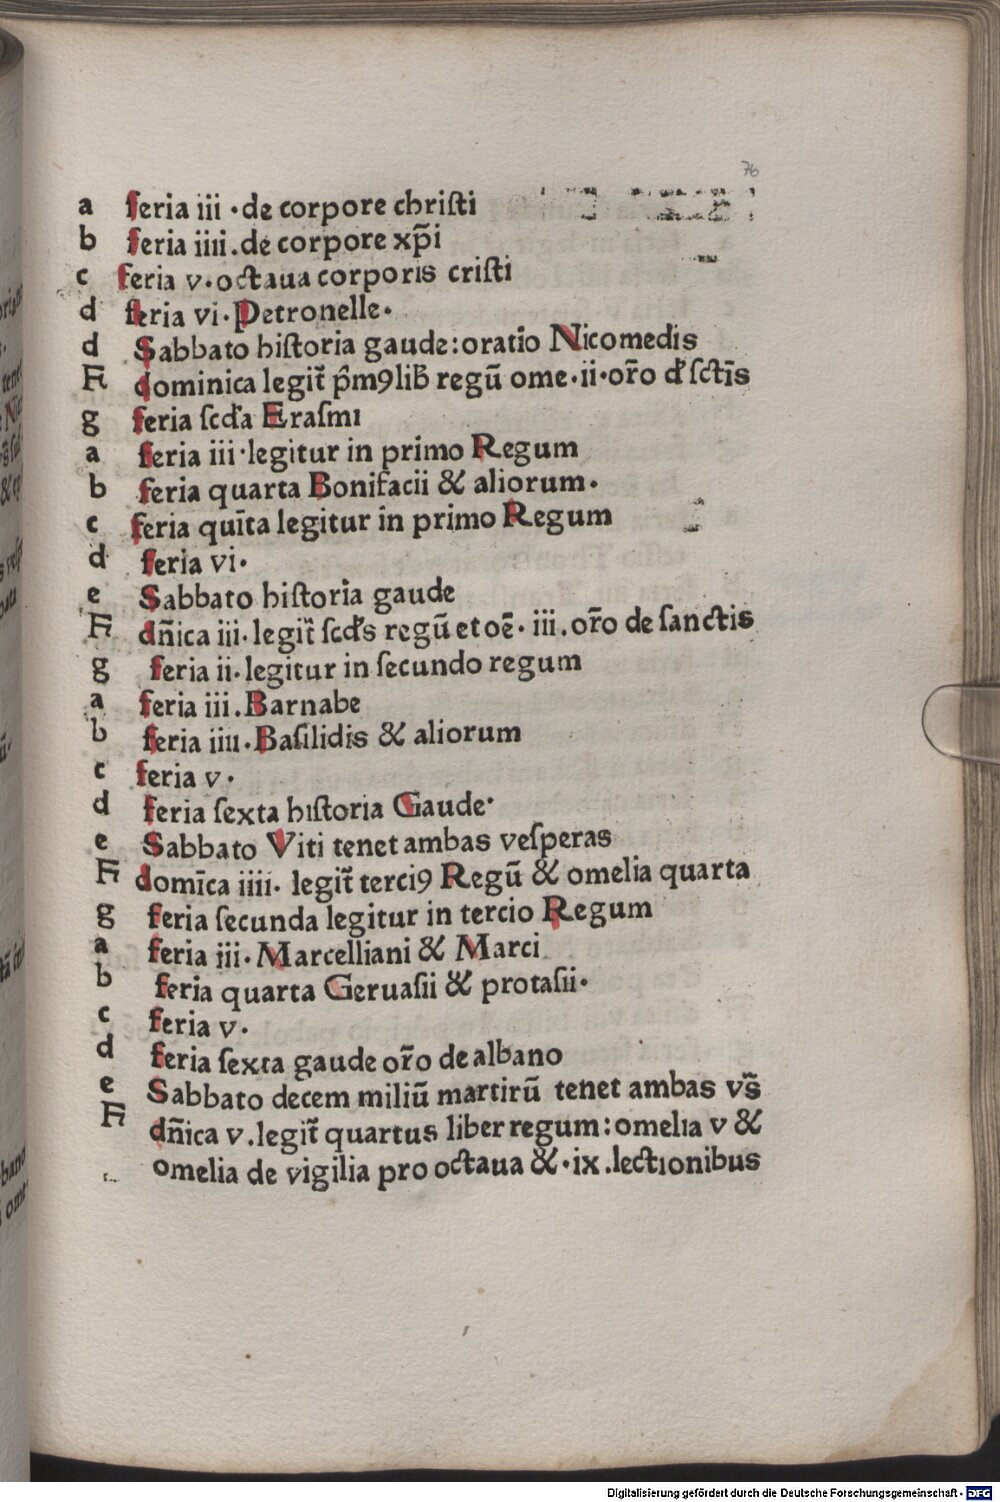 76
a feria iii ·de corpore chriſti
b feria iiii.de corpore xp̄i
c feria v·octaua corporis criſti
d feria vi·Petronelle·
d Sabbato hiſtoria gaude:oratio Nicomedis
F dominica legit̄ p̄m9lib̄ regū ome·ii·or̄o d̄ ſctīs
g feria ſcd̄a Eraſmi
a feria iii·legitur in primo Regum
b feria quarta Bonifacii & aliorum·
c feria quīta legitur in primo Regum
d feria vi·
e Sabbato hiſtoria gaude
F dn̄ica iii·legit̄ ſcd̄s regū et oē· iii.or̄o de ſanctis
g feria ii·legitur in ſecundo regum
a feria iii.Barnabe
b feria iiii·Baſilidis & aliorum
c feria v·
d feria ſexta hiſtoria Gaude·
e Sabbato Viti tenet ambas veſperas
F domīca iiii· legit̄ terci9 Regū & omelia quarta
g feria ſecunda legitur in tercio Regum
a feria iii·Marcelliani & Marci
b feria quarta Geruaſii & protaſii·
c feria v·
d feria ſexta gaude or̄o de albano
e Sabbato decem miliū martirū tenet ambas vs̄
F dn̄ica v.legit̄ quartus liber regum:omelia v &
omelia de vigilia pro octaua &·ix.lectionibus
Digitalisierung gefördert durch die Deutsche Forschungsgemeinschaft - DFG